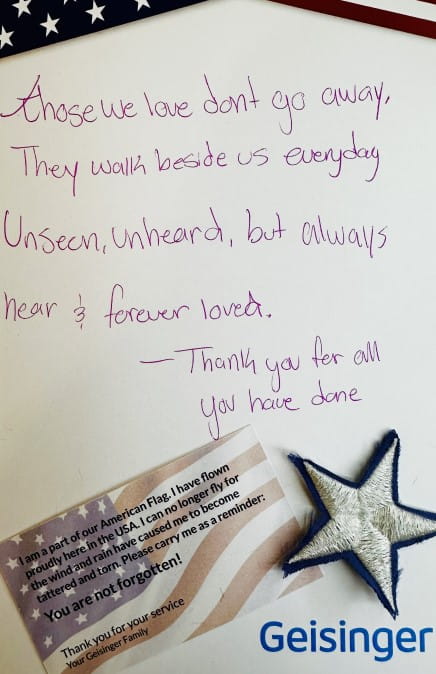 those we love dont go away.
They walk beside us everyday
Unseen, unheard, but always
near & forever loved.
— Thank you for all
you have done
I am a part of our American Flag. I have flown
proudly here in the USA. I can no longer fly for
the wind and rain have caused me to become
tattered and torn. Please carry me as a reminder:
You are not forgotten!
Thank you for your service
Your Geisinger Family
Geisinger